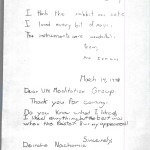 I think the rabbit was cute
I loved every bit of music.
The instruments were wonderful.
March 19, 1998
Dear UN Meditation Group,
Thank you for coming.
Do you know what I liked?
I liked everything, but the best was
when the Easter Bunny appeared!
Sincerely,
Deirdre